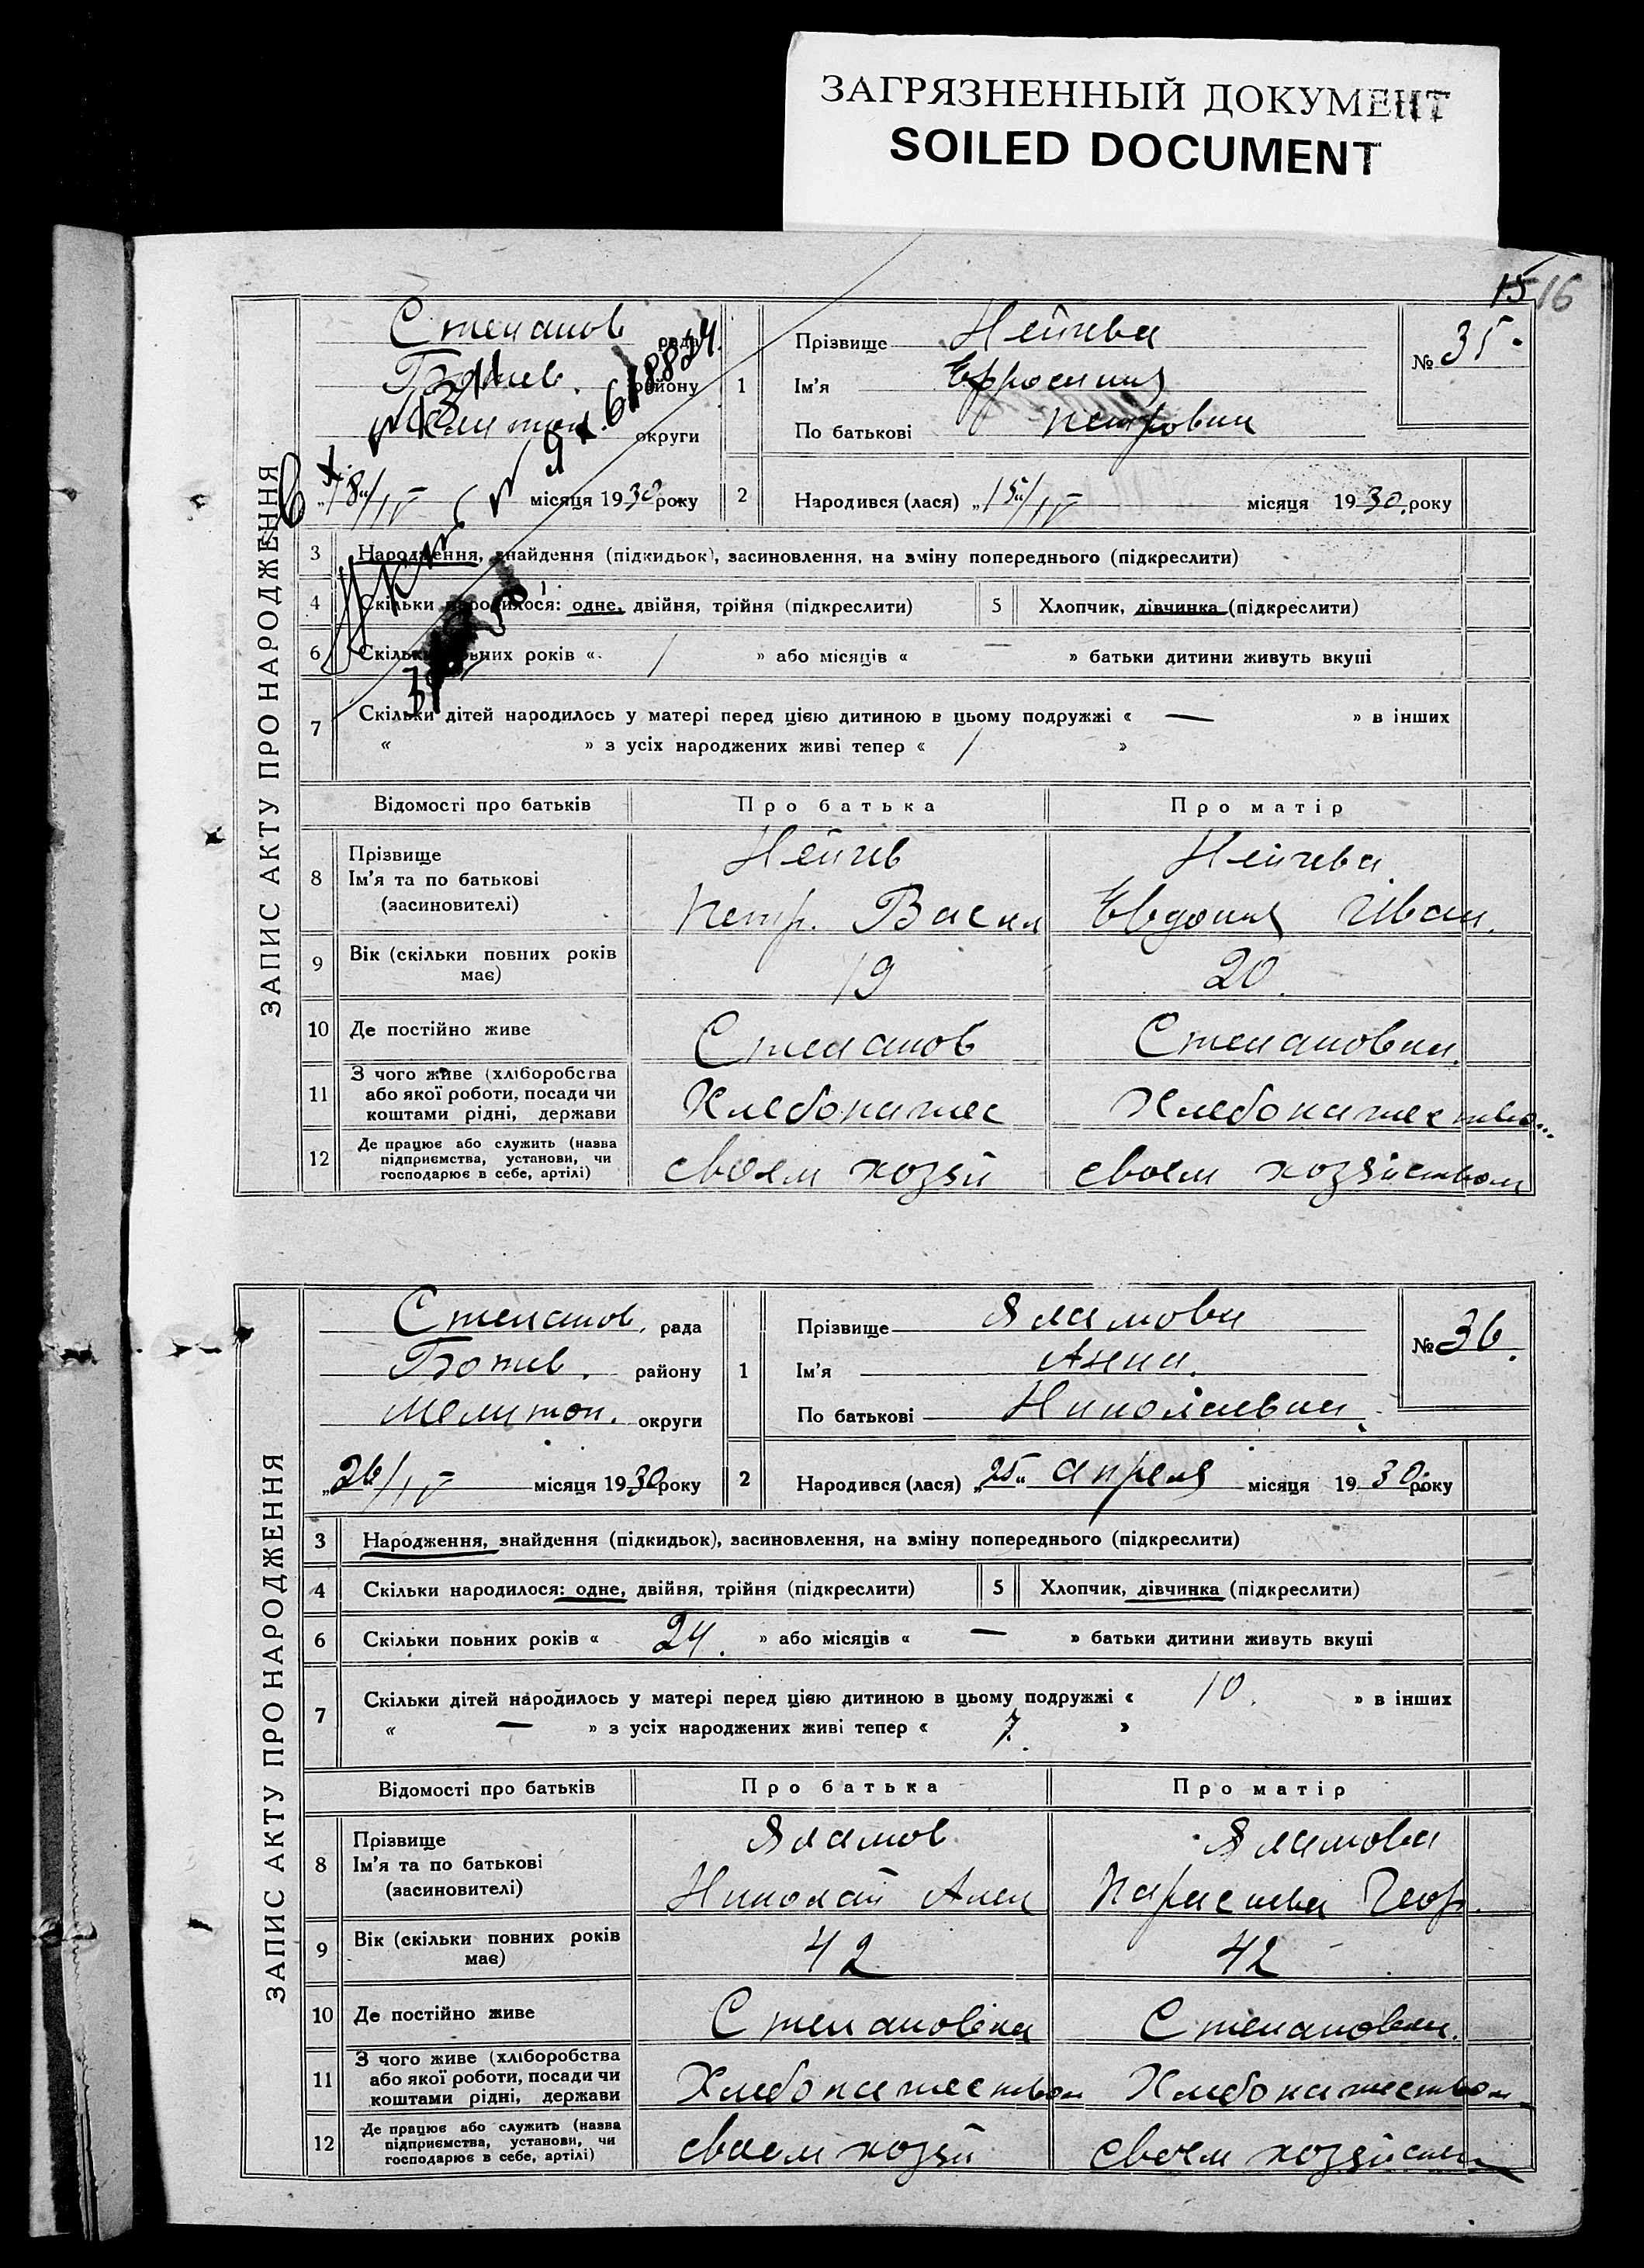 ЗАГРЯЗНЕННЫЙ ДОКУМЕНТ
SOILED DOCUMENT
15 16
ЗАПИС АКТУ ПРО НАРОДЖЕННЯ
Степанов рада
Ботиев. району
округи
18/IV місяця 1930 року
1 Прізвище Нейчева
Ім'я Ефросиния
По батькові Петровна
№ 35
2 Народився (лася) „15“/IV місяця 1930. року
3 Народження, знайдення (підкидьок), засиновлення, на зміну попереднього (підкреслити)
4 Скільки народилося: одне, двійня, трійня (підкреслити) 5 Хлопчик, дівчинка (підкреслити)
6 Скільки повних років « 1 » або місяців « — » батьки дитини живуть вкупі
7 Скільки дітей народилось у матері перед цією дитиною в цьому подружжі « — » в інших
« » з усіх народжених живі тепер « 1 »
Відомості про батьків Про батька Про матір
8 Прізвище Нейчев Нейчева
Ім'я та по батькові
(засиновителі) Петр. Васил Евдокия Иван.
9 Вік (скільки повних років має) 19 20.
10 Де постійно живе Степанов Степановка.
11 З чого живе (хліборобства
або якої роботи, посади чи
коштами рідні, держави Хлебопашес Хлебопашество
12 Де працює або служить (назва
підприємства, установи, чи
господарює в себе, артілі) своем хозяй своем хозяйством
ЗАПИС АКТУ ПРО НАРОДЖЕННЯ
Степанов. рада
Ботиев. району
Мелитоп. округи
„26/IV місяця 1930 року
1 Прізвище Яламова
Ім'я Анна.
По батькові Николаевна.
№ 36.
2 Народився (лася) „25“ апреля місяця 1930. року
3 Народження, знайдення (підкидьок), засиновлення, на зміну попереднього (підкреслити)
4 Скільки народилося: одне, двійня, трійня (підкреслити) 5 Хлопчик, дівчинка (підкреслити)
6 Скільки повних років « 24. » або місяців « — » батьки дитини живуть вкупі
7 Скільки дітей народилось у матері перед цією дитиною в цьому подружжі « 10. » в інших
« — » з усіх народжених живі тепер « 7. »
Відомості про батьків Про батька Про матір
8 Прізвище Яламов Яламова
Ім'я та по батькові
(засиновителі) Николай Алек Параскева Геор.
9 Вік (скільки повних років має) 42 42
10 Де постійно живе Степановка Степановка.
11 З чого живе (хліборобства
або якої роботи, посади чи
коштами рідні, держави Хлебопашеством Хлебопашеством
12 Де працює або служить (назва
підприємства, установи, чи
господарює в себе, артілі) своем хозяй своем хозяйств